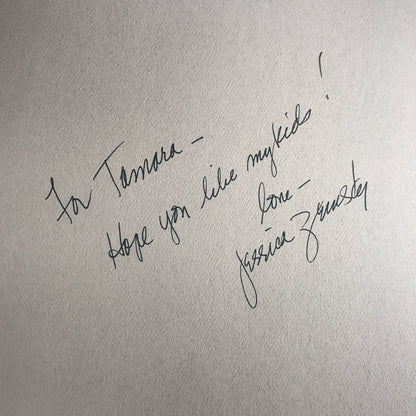 For Tamara –
Hope you like my kids!
Love –
Jessica Zemsky